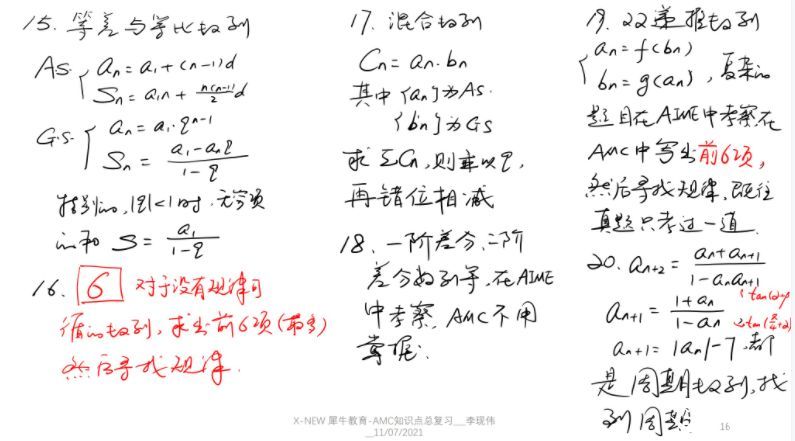 15. 等差与等比数列
A.S. { an = a1 + (n-1)d
Sn = a1n + n(n-1)/2 d
G.S. { an = a1·q^(n-1)
Sn = (a1 - anq)/(1-q)
特别的, |q|<1时, 无穷项
的和 S = a1/(1-q)
16. 6 对于没有规律可
循的数列, 求出前6项(最多)
然后寻找规律.
17. 混合数列
Cn = an·bn
其中{an}为A.S.
{bn}为G.S
求ΣCn, 则乘以q,
再错位相减
18. 一阶差分, 二阶
差分数列等, 在AIME
中考察, AMC不用
掌握.
19. 双递推数列
{ an = f(bn)
bn = g(an), 复杂的
题目在AIME中考察, 在
AMC中写出前6项,
然后寻找规律, 既往
真题只考过一道.
20. an+2 = (an + an+1)/(1 - anan+1)
an+1 = (1+an)/(1-an)
an+1 = |an| - 7, 都
是周期数列, 找
到周期
X-NEW 犀牛教育-AMC知识点总复习__李现伟
__11/07/2021
16